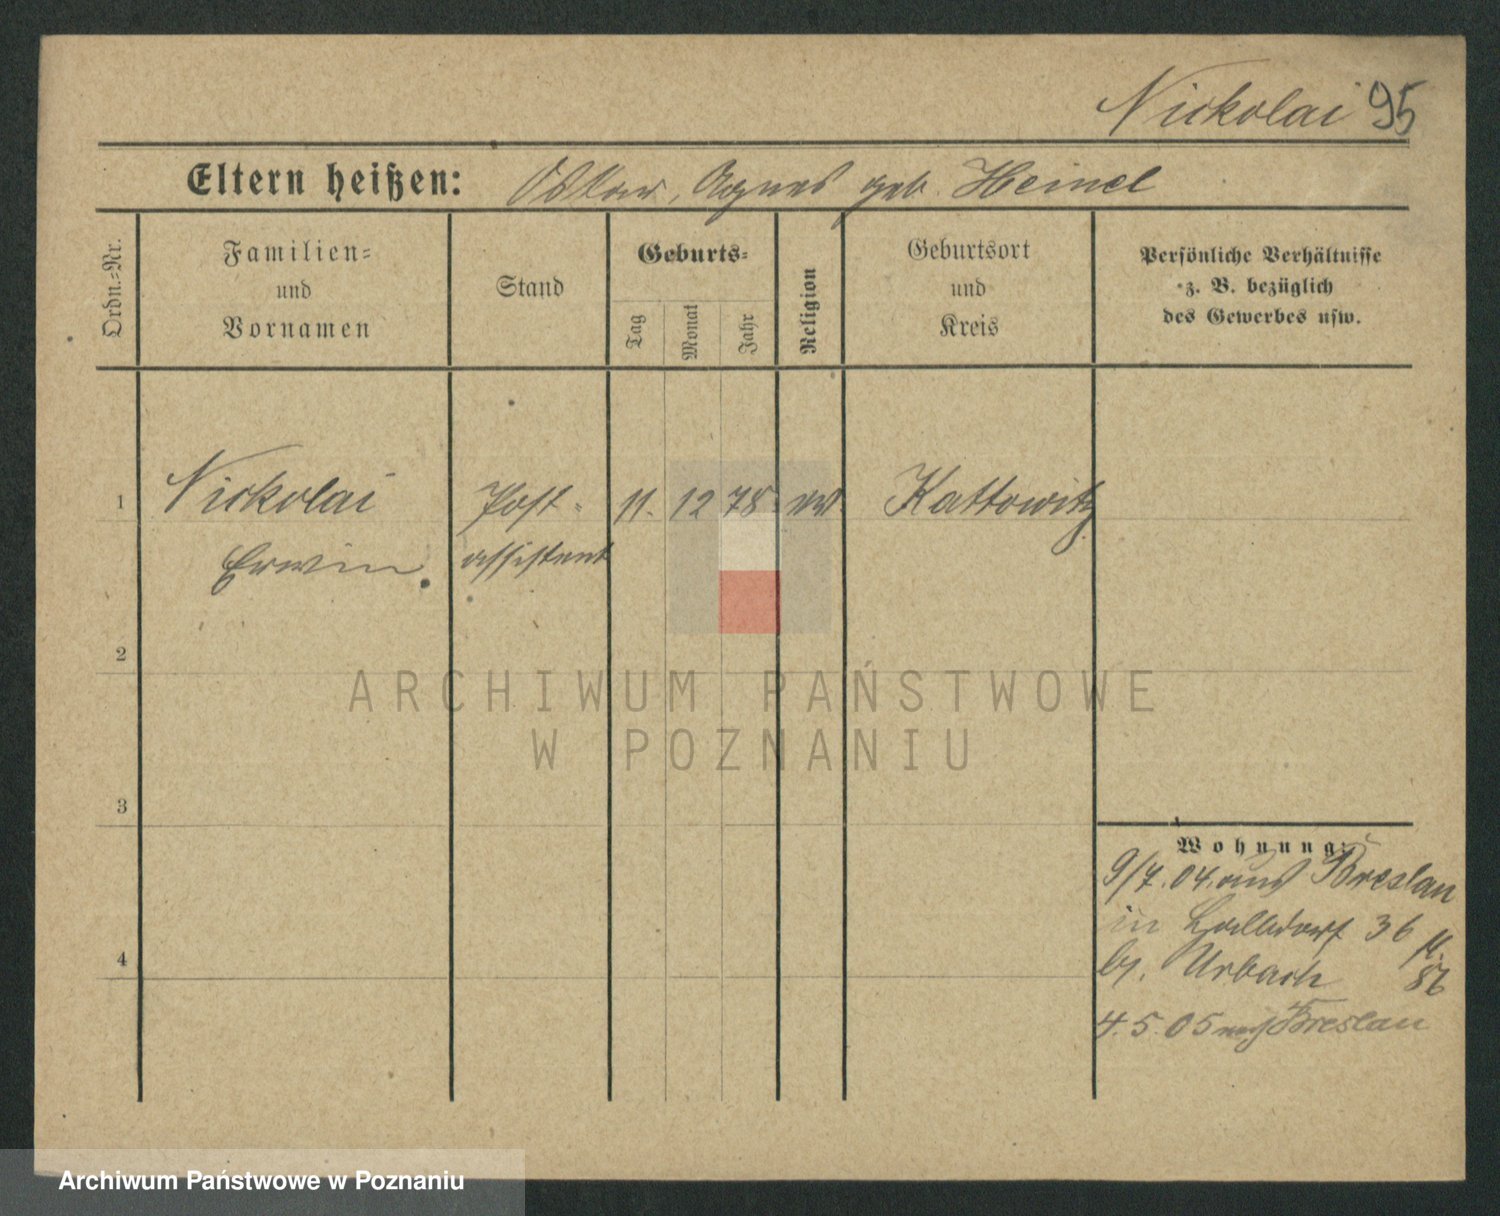 Nickolai 95
Eltern heißen: Oskar, Agnes geb. Heinel
Ordn.=Nr.
Familien=
und
Vornamen
Stand
Geburts=
Tag
Monat
Jahr
Religion
Geburtsort
und
Kreis
Persönliche Verhältnisse
z. B. bezüglich
des Gewerbes usw.
1 Nickolai Post- 11. 12 78. ev. Kattowitz
Erwin. assistent
2
3
4
Wohnung:
9/7. 04. aus Breslau
in 36
bz. Urbach 86
4. 5. 05 nach Breslau
ARCHIWUM PAŃSTWOWE
W POZNANIU
Archiwum Państwowe w Poznaniu